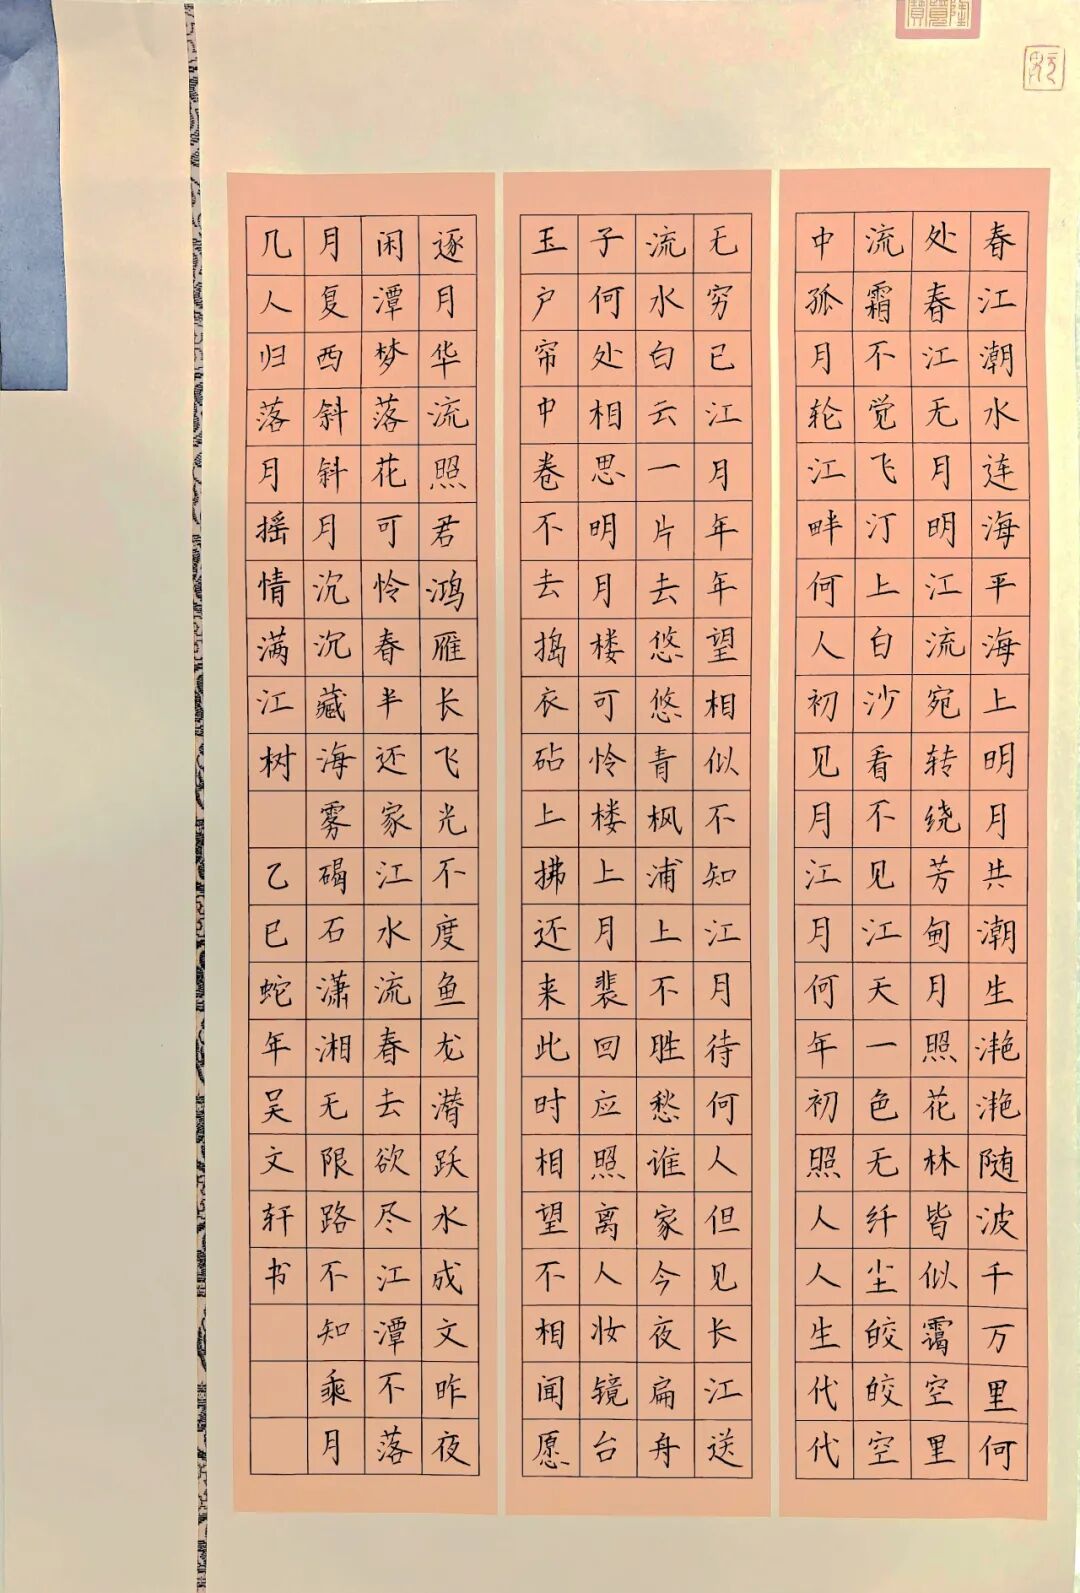 春江潮水连海平海上明月共潮生滟滟随波千万里何
处春江无月明江流宛转绕芳甸月照花林皆似霭空里
流霜不觉飞汀上白沙看不见江天一色无纤尘皎皎空
中孤月轮江畔何人初见月江月何年初照人人生代代
无穷已江月年年望相似不知江月待何人但见长江送
流水白云一片去悠悠青枫浦上不胜愁谁家今夜扁舟
子何处相思明月楼可怜楼上月裴回应照离人妆镜台
玉户帘中卷不去捣衣砧上拂还来此时相望不相闻愿
逐月华流照君鸿雁长飞光不度鱼龙潜跃水成文昨夜
闲潭梦落花可怜春半还家江水流春去欲尽江潭不落
月复西斜斜月沉沉藏海雾碣石潇湘无限路不知乘月
几人归落月摇情满江树 乙巳蛇年吴文轩书